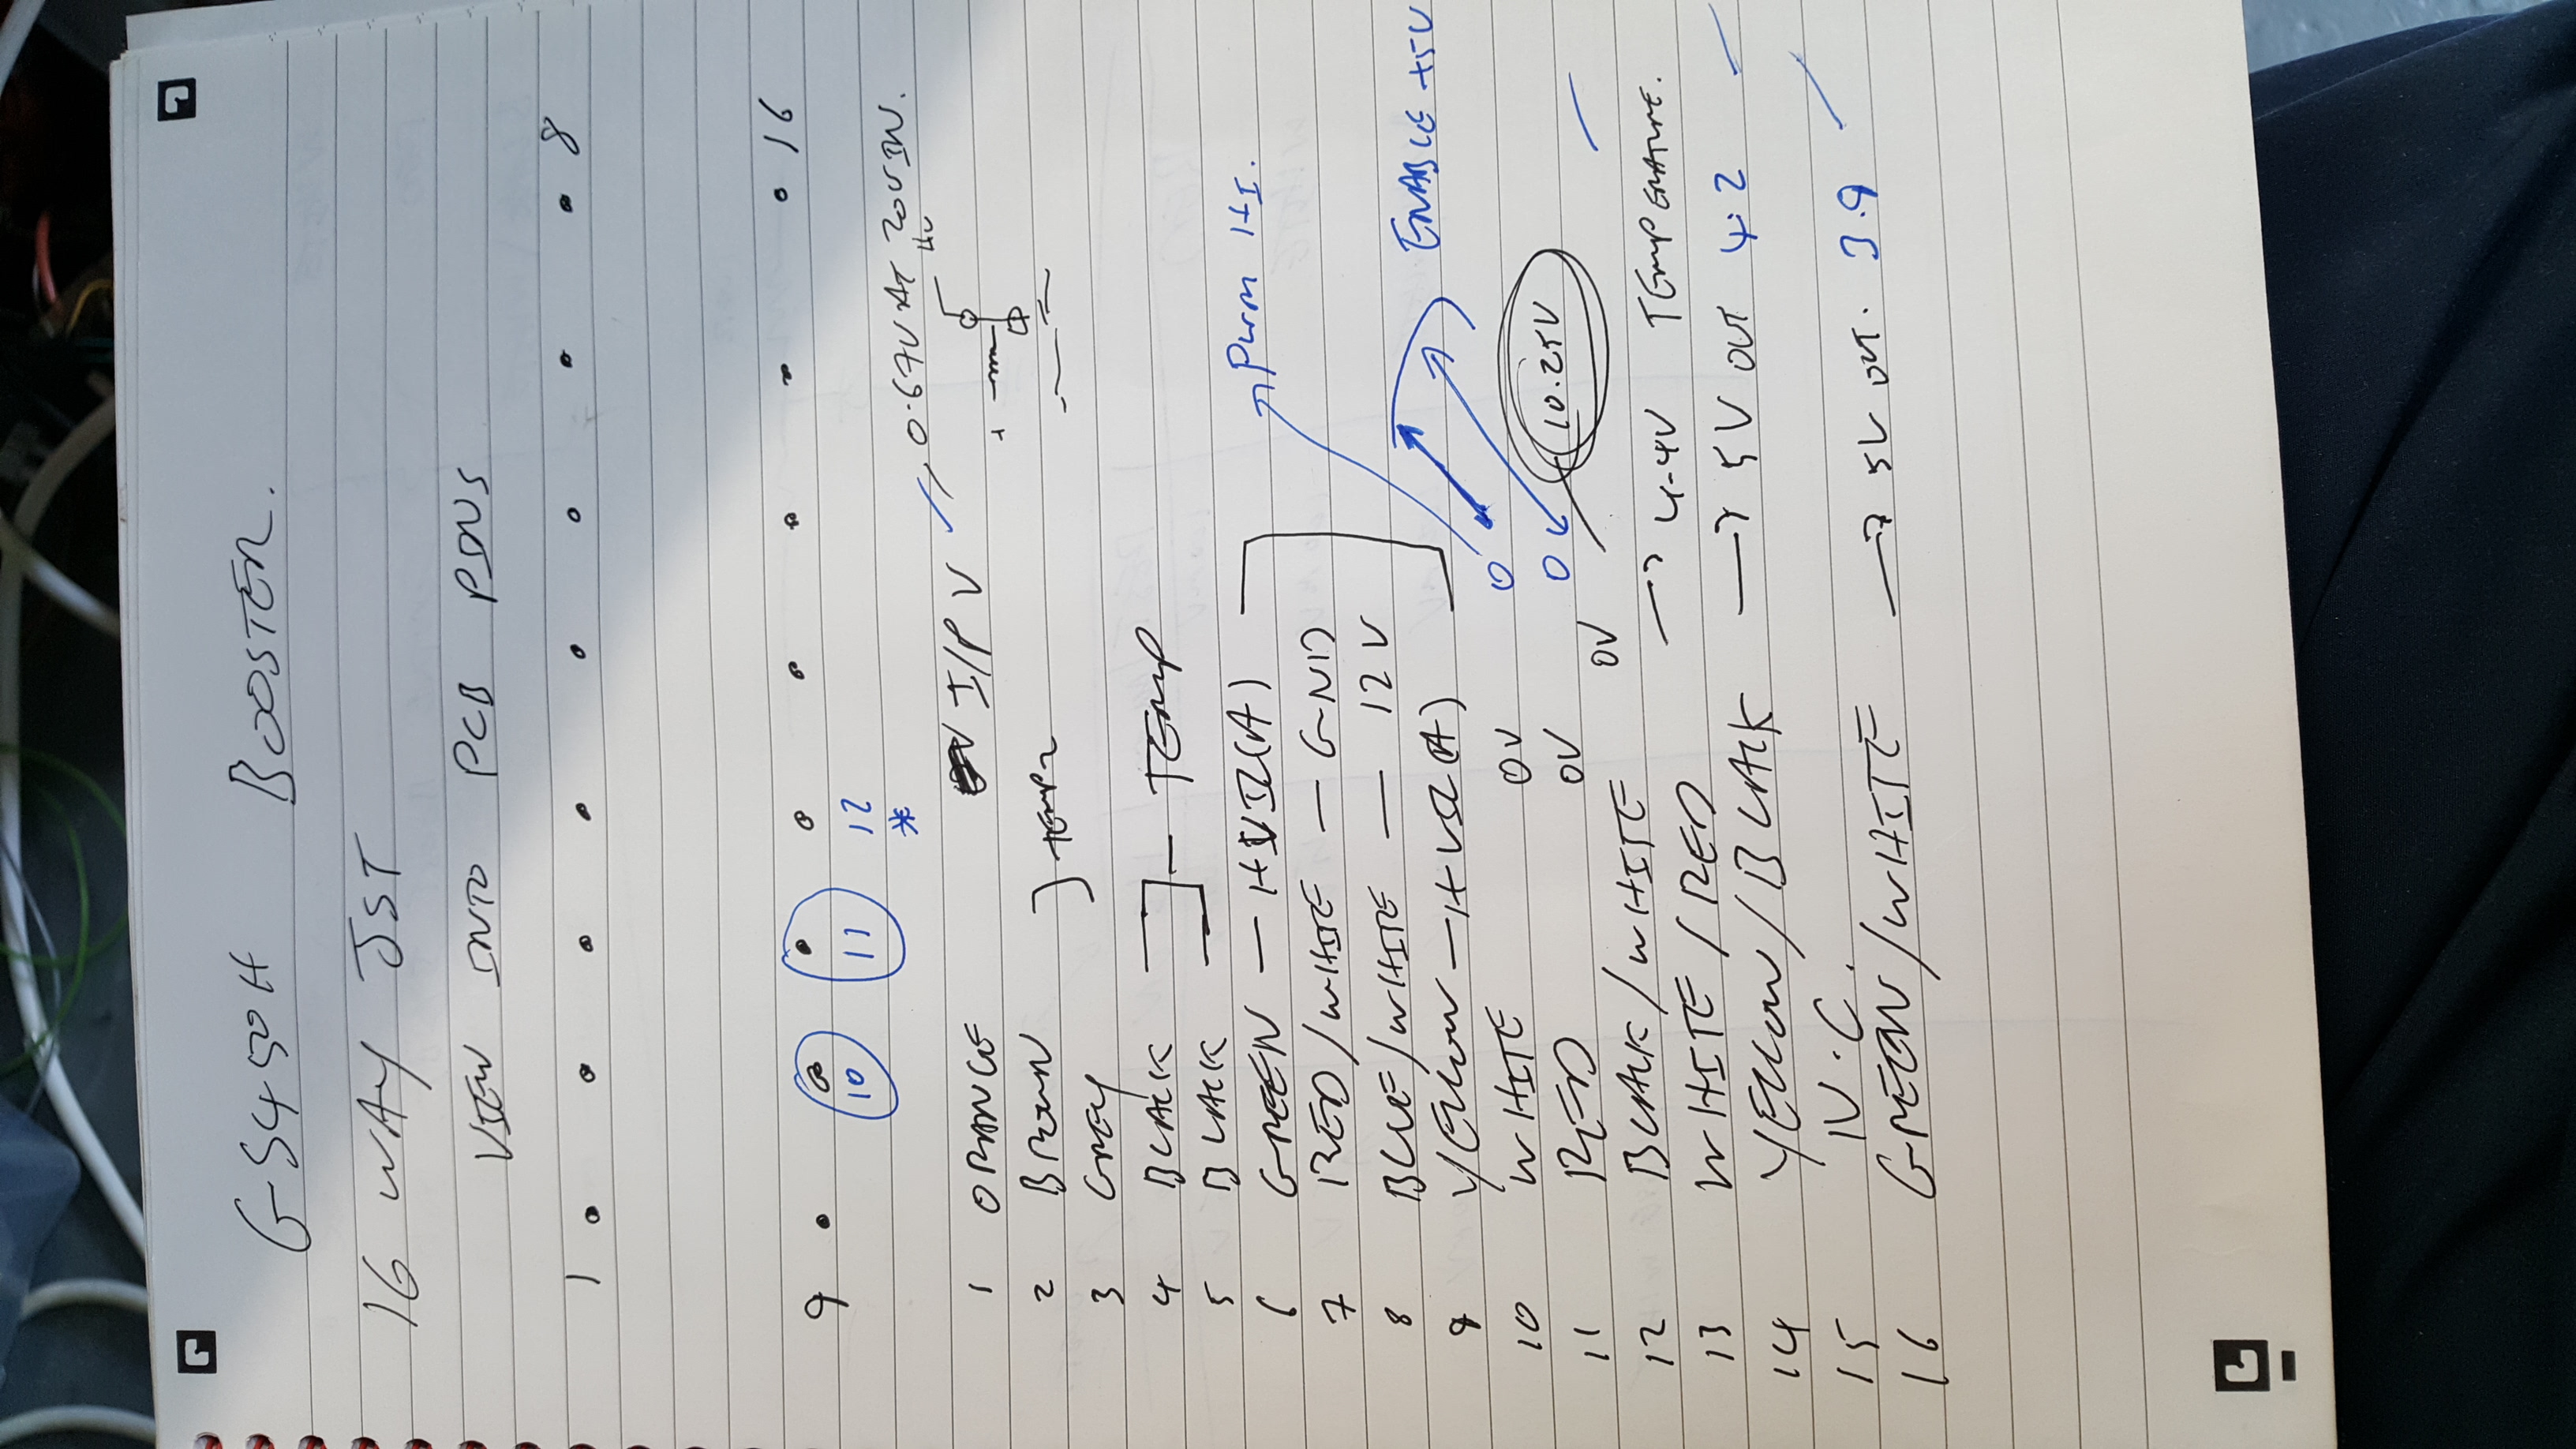 GS450H BOOSTER.
16 WAY JST
VIEW INTO PCB PINS
1 8
9 10 11 12 16
*
1 ORANGE I/P V 0.67V AT 20V IN.
HV
+
2 BROWN } TEMP2
3 GREY
4 BLACK ] — TEMP
5 BLACK
6 GREEN — HVI2(A) PWM HI.
7 RED/WHITE — GND
8 BLUE/WHITE — 12V
9 YELLOW — HVS2(A) ENABLE +5V
10 WHITE 0V 0
11 RED 0V 0 10.25V
12 BLACK/WHITE 0V
13 WHITE/RED → 4.4V TEMPERATURE.
14 YELLOW/BLACK → 5V OUT 4.2
15 N.C.
16 GREEN/WHITE → 5V OUT. 3.9